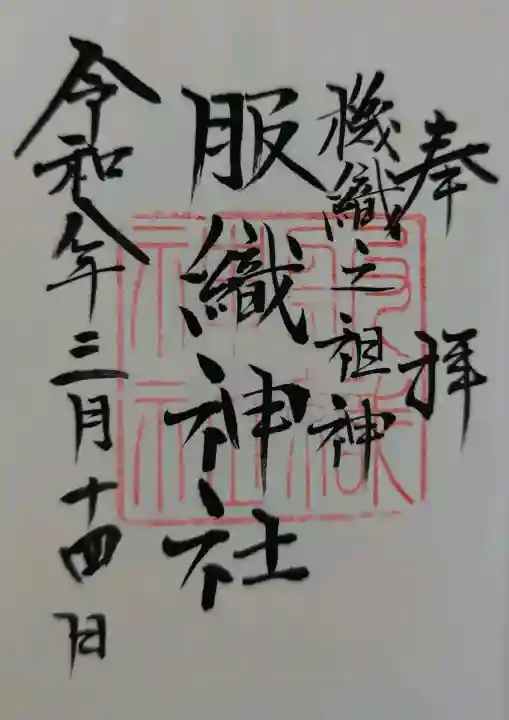 奉拝
機織之祖神
服織神社
令和八年三月十四日
服織神社